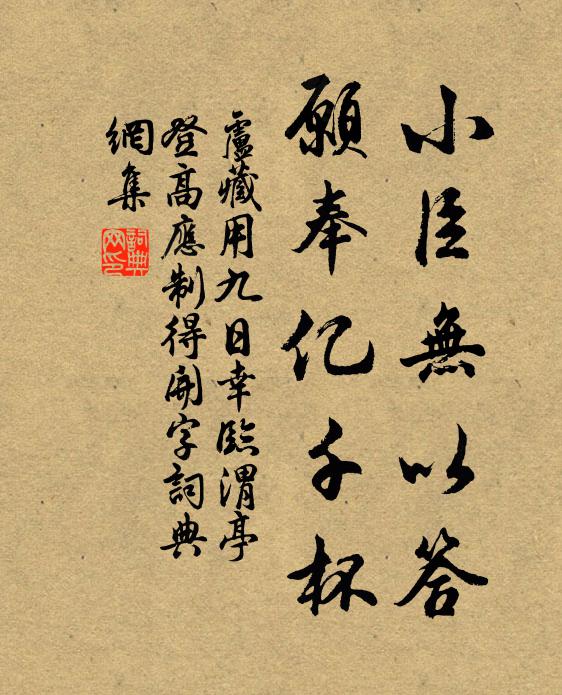 小臣無以答
願奉亿千杯
盧藏用九日幸臨渭亭
登高應制得開字詞典
網集
詞典網印